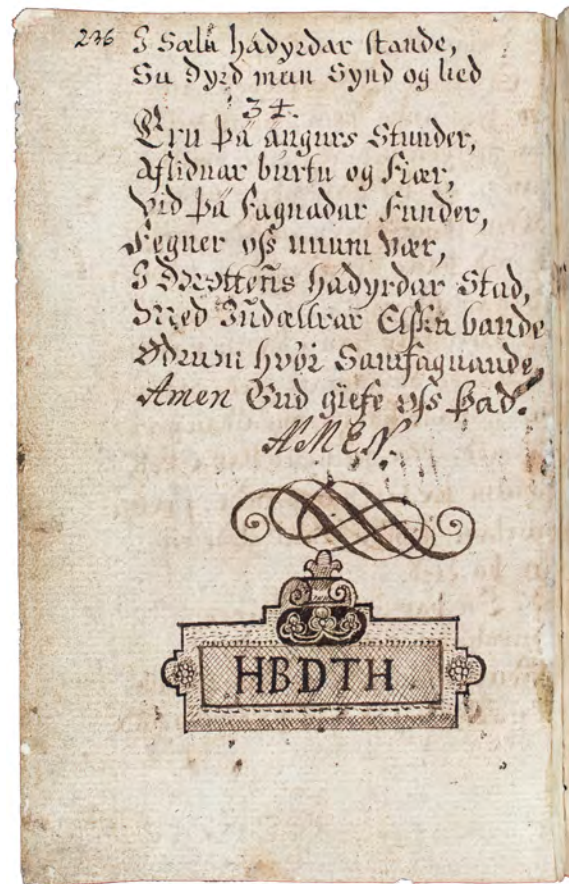 236 I Sælu hádyrdar stande,
Su dyrd mun Synd og lied
34.
Eru þá angurs Stunder,
aflidnar burtu og Fiær,
Vid þá Fagnadar Funder,
Fegner oss unum vær,
I Drottens hádyrdar Stad,
Med Indællrar Elsku bande
Ødrum hvør Samfagnande,
Amen Gud giefe oss það.
AMEN.
HBDTH